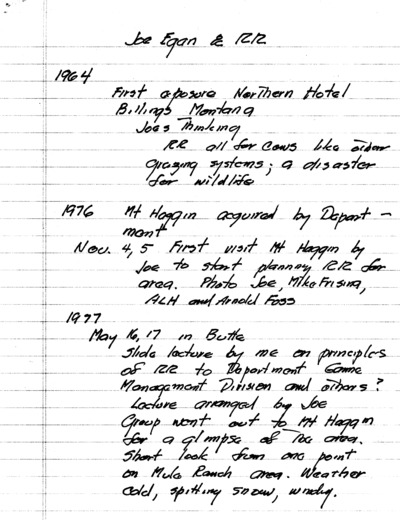 Joe Egan & RR
1964
First exposure Northern Hotel
Billings Montana
Joes Thinking
RR all for cows like older
grazing systems; a disaster
for wildlife
1976 Mt Haggin acquired by Depart-
ment
Nov. 4, 5 First visit Mt Haggin by
Joe to start planning RR for
area. Photo Joe, Mike Frisina,
ALH and Arnold Foss
1977
May 16, 17 in Butte
Slide lecture by me on principles
of RR to Department Game
Management Division and others?
Lecture arranged by Joe
Group went out to Mt Haggin
for a glimpse of the area.
Short look from one point
on Mule Ranch area. Weather
cold, spitting snow, windy.